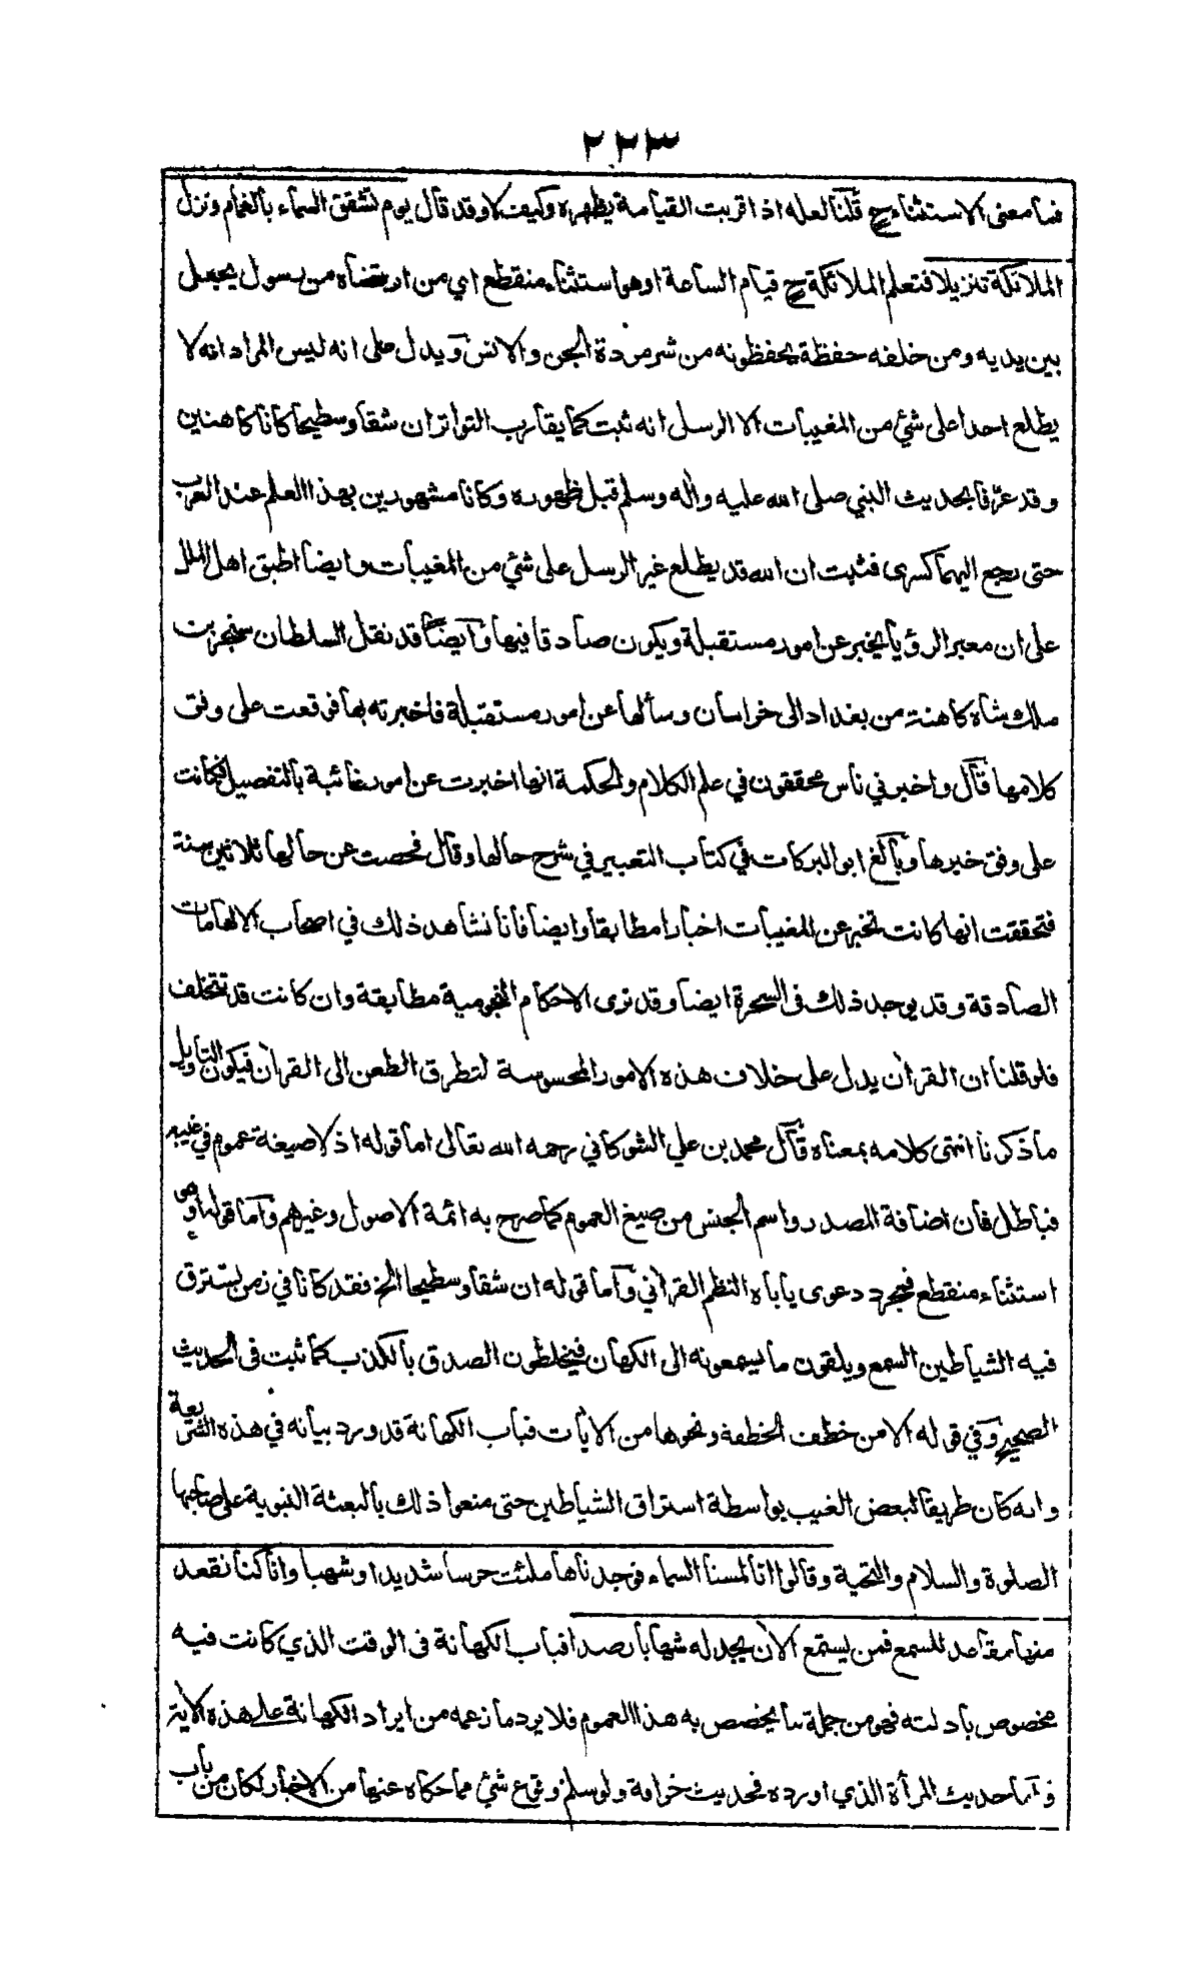 ٢٢٣
فما معنى الاستثناء ح قلنا لعله اذا قربت القيامة يظهره وكيف لا وقد قال يوم تشقق السماء بالغمام ونزل
الملائكة تنزيلا فتعلم الملائكة ح قيام الساعة او هو استثناء منقطع اي من ارتضاه من رسول يجعل
بين يديه ومن خلفه حفظة يحفظونه من شر مردة الجن والانس ويدل على انه ليس المراد انه لا
يطلع احدا على شئ من المغيبات الا الرسل انه ثبت كما يقارب التواتر ان شقا وسطيحا كانا كاهنين
وقد عرّفا بحديث النبي صلى الله عليه واٰله وسلم قبل ظهوره وكانا مشهورين بهذا العلم عند العرب
حتى رجع اليهما كسرى فثبت ان الله قد يطلع غير الرسل على شئ من المغيبات وايضا اطبق اهل الملل
على ان معبر الرؤيا يخبر عن امور مستقبلة ويكون صادقا فيها وايضًا قد نقل السلطان سنجر بن
ملك شاه كاهنة من بغداد الى خراسان وسألها عن امور مستقبلة فاخبرته بها فوقعت على وفق
كلامها قال واخبرني ناس محققون في علم الكلام والحكمة انها اخبرت عن امور غائبة بالتفصيل فكانت
على وفق خبرها وبالغ ابو البركات في كتاب التعبير في شرح حالها وقال فحصت عن حالها ثلاثين سنة
فتحققت انها كانت تخبر عن المغيبات اخبارا مطابقا وايضا فانا نشاهد ذلك في اصحاب الالهامات
الصادقة وقد يوجد ذلك فى السحرة ايضا وقد نرى الاحكام النجومية مطابقة وان كانت قد تتخلف
فلو قلنا ان القراٰن يدل على خلاف هذه الامور المحسوسة لتطرق الطعن الى القراٰن فيكون التاويل
ما ذكرنا انتهى كلامه بمعناه قال محمد بن علي الشوكاني رحمه الله تعالى اما قوله اذ لا صيغة عموم في غيبه
فباطل فان اضافة المصدر واسم الجنس من صيغ العموم كما صرح به ائمة الاصول وغيرهم واما قوله او هو
استثناء منقطع فمجرد دعوى ياباه النظم القراٰني واما قوله ان شقا وسطيحا الخ فقد كانا في زمن تسترق
فيه الشياطين السمع ويلقون ما يسمعونه الى الكهان فيخلطون الصدق بالكذب كما ثبت فى الحديث
الصحيح وفي قوله الا من خطف الخطفة ونحوها من الاٰيات فباب الكهانة قد ورد بيانه في هذه الشريعة
وانه كان طريقا لبعض الغيب بواسطة استراق الشياطين حتى منعوا ذلك بالبعثة النبوية على صاحبها
الصلوة والسلام والتحية وقالوا انا لمسنا السماء فوجدناها ملئت حرسا شديدا وشهبا وانا كنا نقعد
منها مقاعد للسمع فمن يستمع الاٰن يجد له شهابا رصدا فباب الكهانة فى الوقت الذي كانت فيه
مخصوص بادلته فهو من جملة ما يخصص به هذا العموم فلا يرد ما زعمه من ايراد الكهانة على هذه الاٰية
واما حديث المرأة الذي اورده فحديث خرافة ولو سلم وقوع شئ مما حكاه عنها من الاخبار لكان من باب